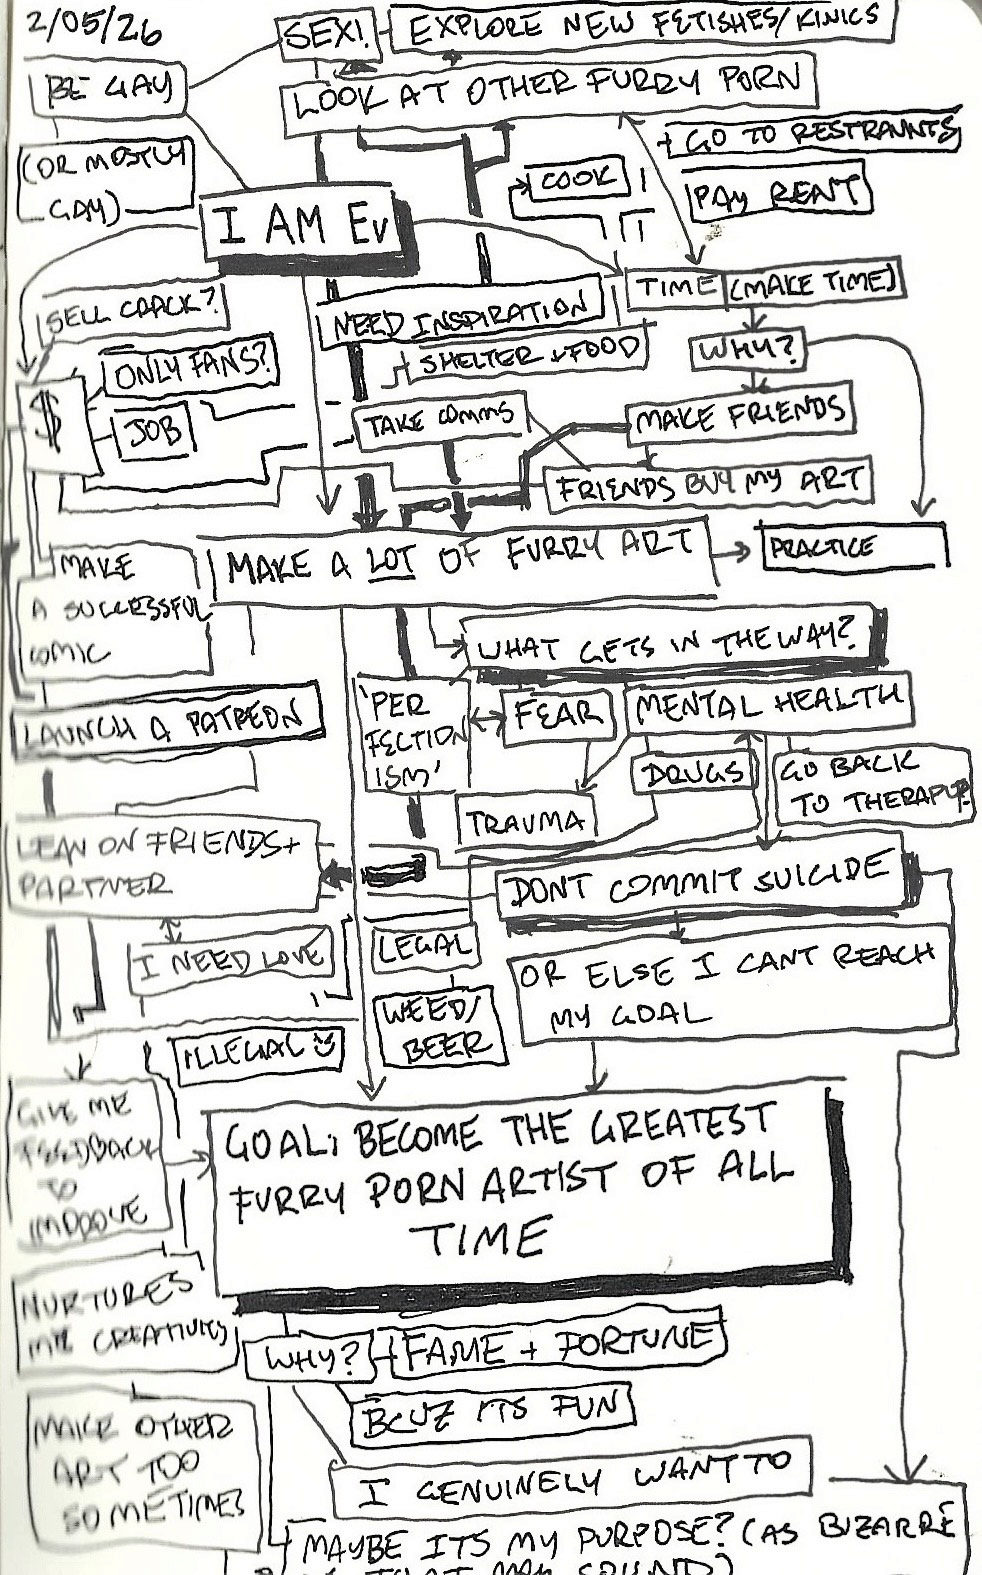 2/05/26
SEX!
EXPLORE NEW FETISHES/KINKS
BE GAY
LOOK AT OTHER FURRY PORN
(OR MOSTLY
GAY)
+ GO TO RESTRANNTS
COOK
PAY RENT
I AM EV
TIME (MAKE TIME)
SELL CRACK?
NEED INSPIRATION
ONLY FANS?
+ SHELTER + FOOD
WHY?
$
JOB
TAKE COMMS
MAKE FRIENDS
FRIENDS BUY MY ART
MAKE A LOT OF FURRY ART
PRACTICE
MAKE
A SUCCESSFUL
COMIC
WHAT GETS IN THE WAY?
'PER
FECTION
ISM'
FEAR
MENTAL HEALTH
LAUNCH A PATREON
DRUGS
GO BACK
TO THERAPY?
TRAUMA
LEAN ON FRIENDS +
PARTNER
DONT COMMIT SUICIDE
I NEED LOVE
LEGAL
OR ELSE I CANT REACH
MY GOAL
WEED/
BEER
ILLEGAL
GIVE ME
FEEDBACK
TO
IMPROVE
GOAL: BECOME THE GREATEST
FURRY PORN ARTIST OF ALL
TIME
NURTURES
MY CREATIVITY
WHY?
FAME + FORTUNE
BCUZ ITS FUN
MAKE OTHER
ART TOO
SOMETIMES
I GENUINELY WANT TO
MAYBE ITS MY PURPOSE? (AS BIZARRE
THAT MAY SOUND)